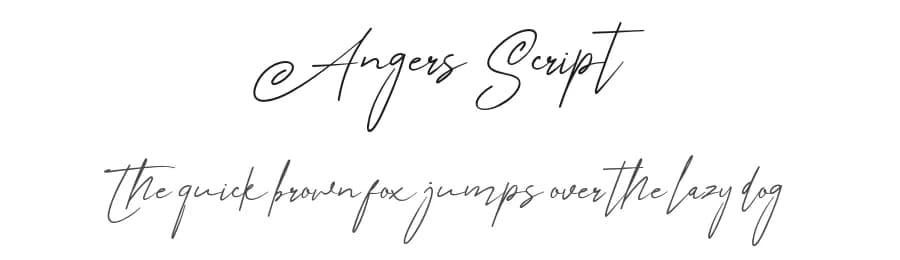 Angers Script
The quick brown fox jumps over the lazy dog